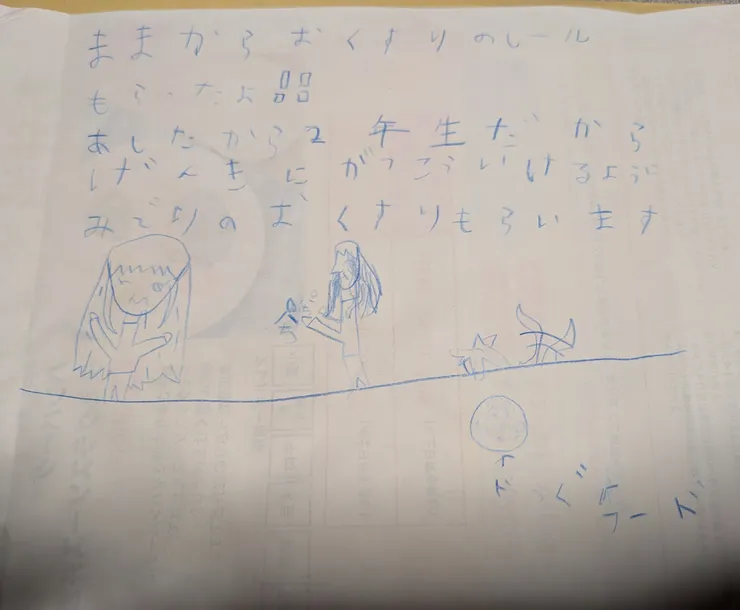 ままからおくすりのしール
もらったよ品
あしたから2年生だから
げんきにがっこういけるように
みどりのおくすりもらいます
どっぐフード